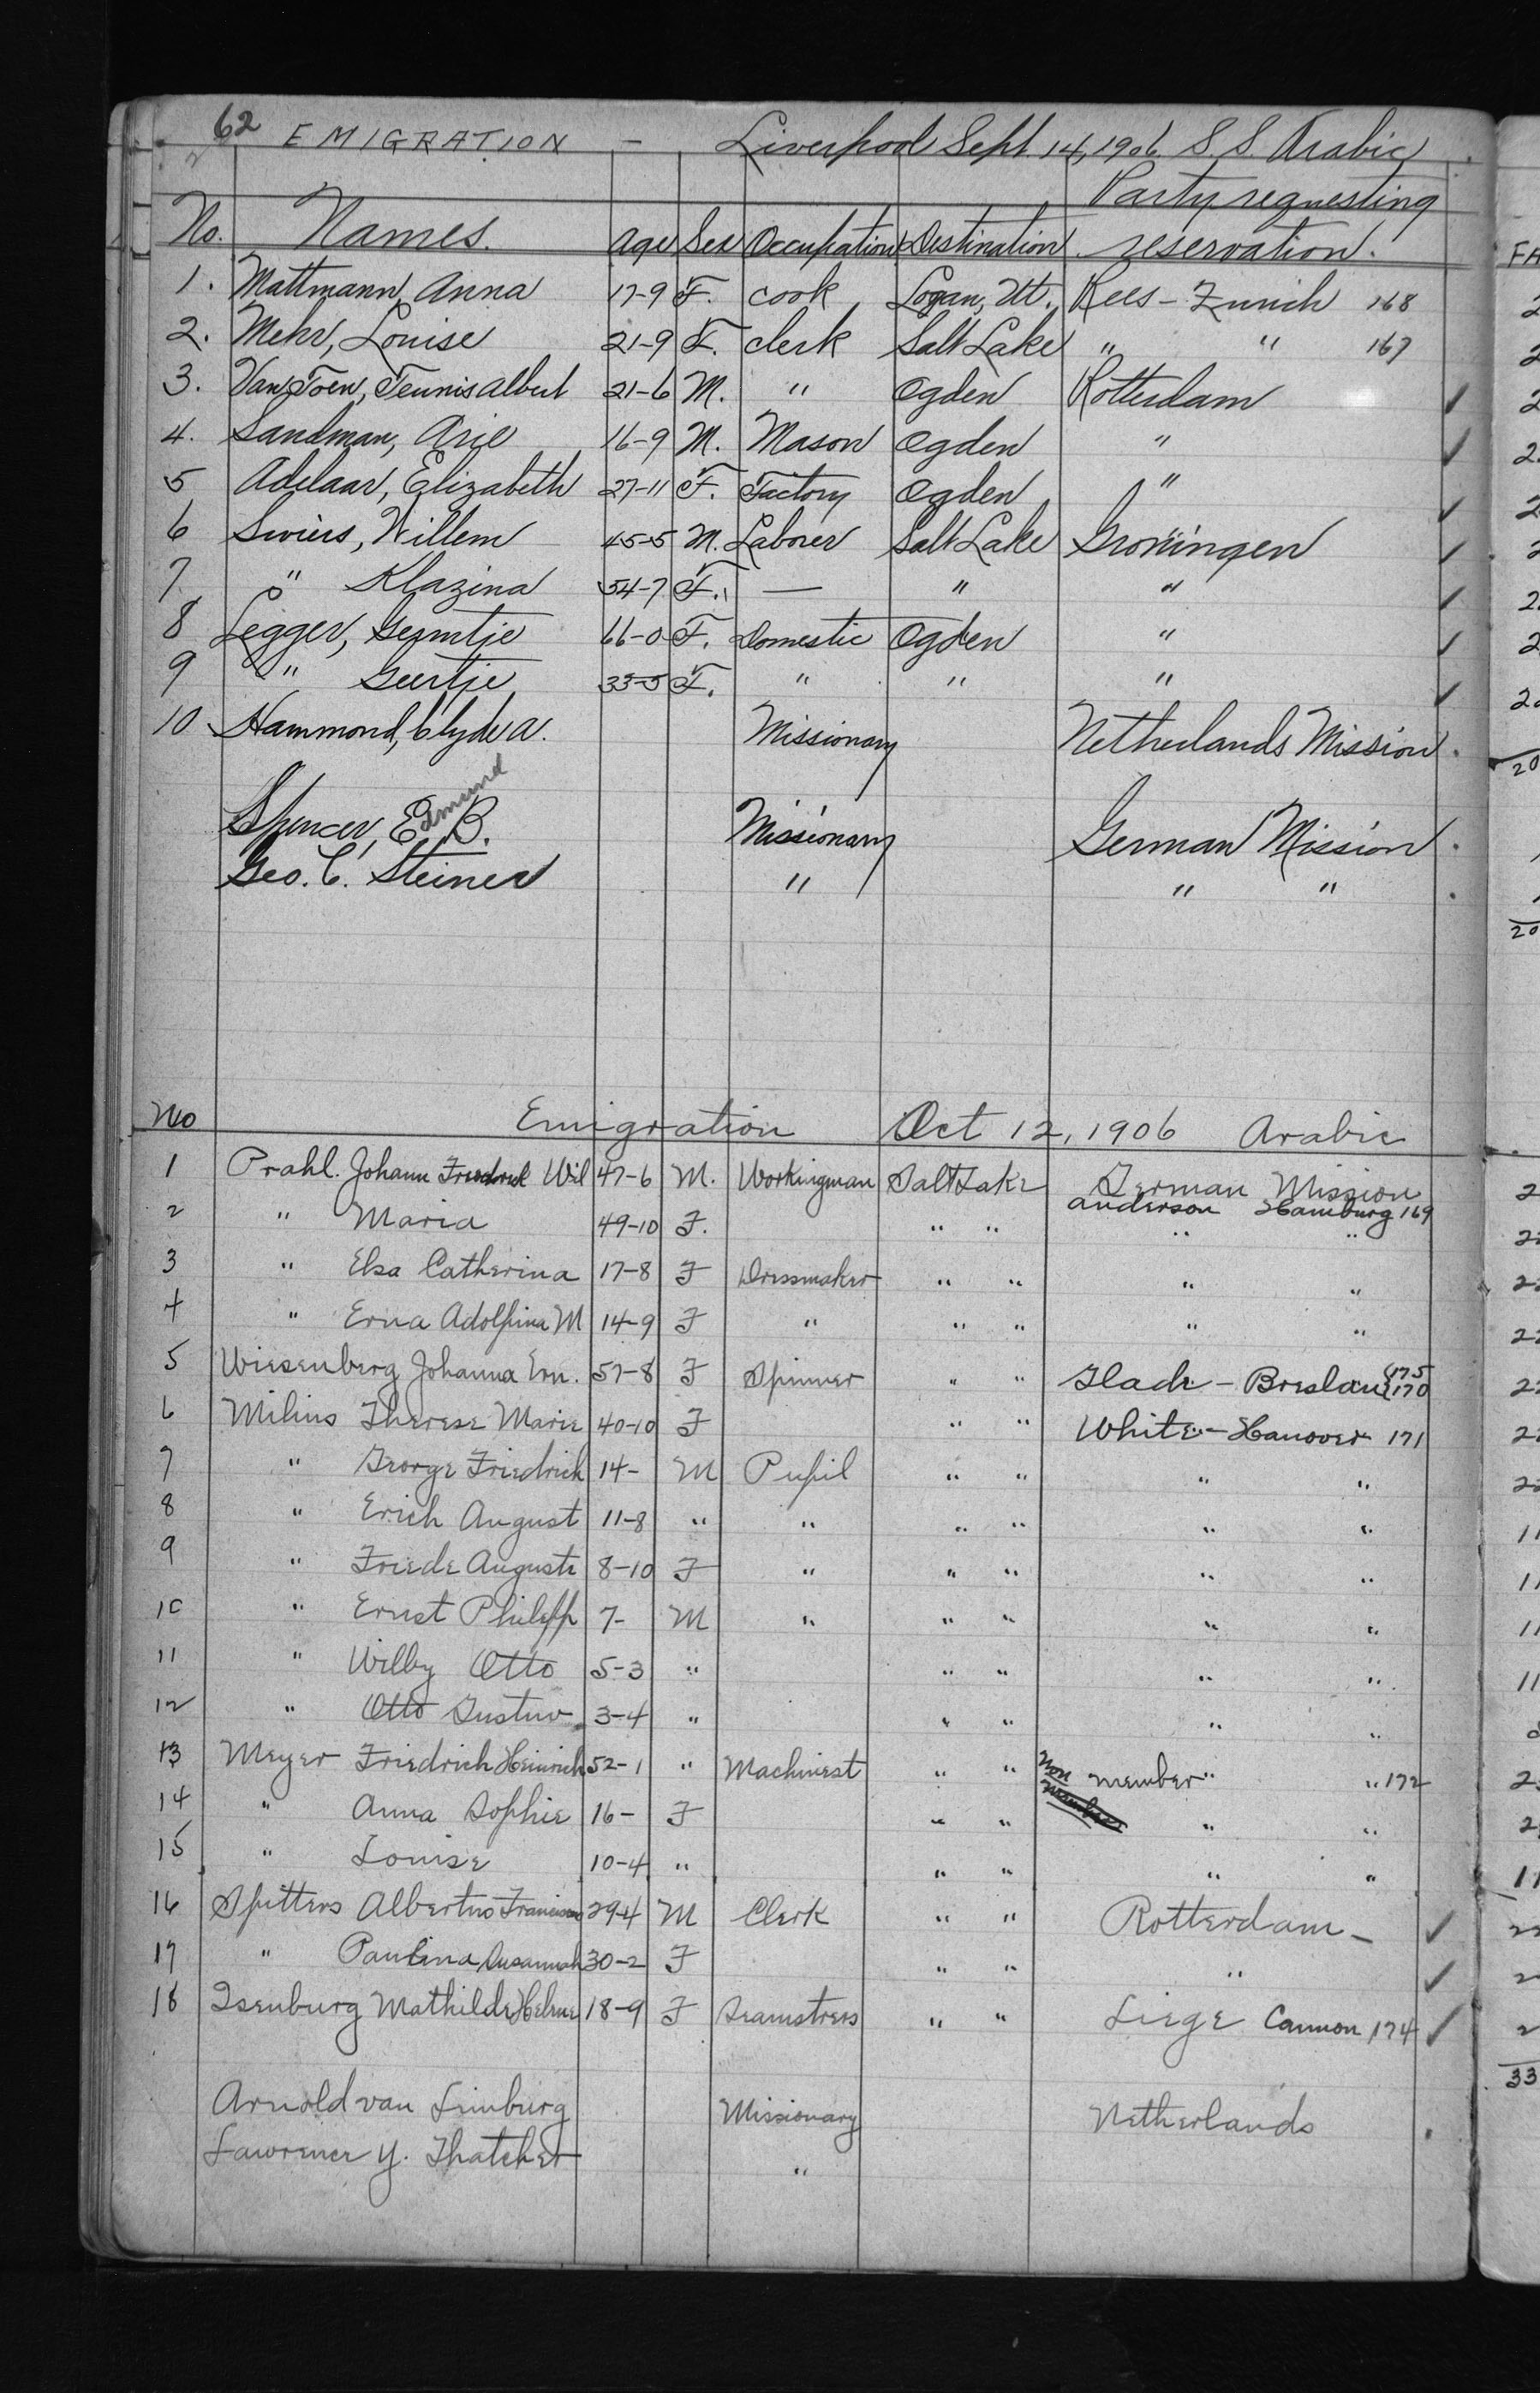 62 EMIGRATION - Liverpool Sept. 14, 1906. S.S. Arabic
No. Names. Age Sex Occupation Destination Party requesting reservation.
1. Mattmann, Anna 17-9 F. cook Logan, Ut. Rees - Zurich 168
2. Mehr, Louise 21-9 F. clerk Salt Lake " " 167
3. Van Toen, Teunis Albert 21-6 M. " Ogden Rotterdam ✓
4. Sandman, Arie 16-9 M. Mason Ogden " ✓
5 Adelaar, Elizabeth 27-11 F. Factory Ogden " ✓
6 Swiers, Willem 45-5 M. Laborer Salt Lake Groningen ✓
7 " Klazina 54-7 F. — " " ✓
8 Legger, Geertje 66-0 F. Domestic Ogden " ✓
9 " Geertje 33-5 F. " " " ✓
10 Hammond, Clyde A. Missionary Netherlands Mission .
Spencer, Edmund B. Missionary German Mission .
Geo. C. Steiner " " " .
No Emigration Oct 12, 1906 Arabic
1 Prahl. Johann Friedrich Wil 47-6 M. Workingman Salt Lake German Mission
Anderson Hamburg 169
2 " Maria 49-10 F. " " " "
3 " Elsa Catherina 17-8 F Dressmaker " " " "
4 " Erna Adolfina M 14-9 F " " " " "
5 Wiesenberg Johanna Ern. 57-8 F Spinner " " Glade - Breslau {175 170
6 Milius Therese Marie 40-10 F " " White - Hanover 171
7 " George Friedrich 14- M Pupil " " " "
8 " Erich August 11-8 " " " " " "
9 " Friede Auguste 8-10 F " " " " "
10 " Ernst Philipp 7- M " " " " "
11 " Willy Otto 5-3 " " " " "
12 " Otto Gustav 3-4 " " " " "
13 Meyer Friedrich Heinrich 52-1 " Machinest " " Non member " " 172
14 " Anna Sophie 16- F " " member " "
15 " Louise 10-4 " " " " "
16 Spitters Albertus Franciscus 29-4 M Clerk " " Rotterdam - ✓
17 " Paulina Susannah 30-2 F " " " ✓
18 Isenburg Mathilde Helene 18-9 F Seamstress " " Liege Cannon 174 ✓
Arnold van Limburg Missionary Netherlands .
Lawrence Y. Thatcher "